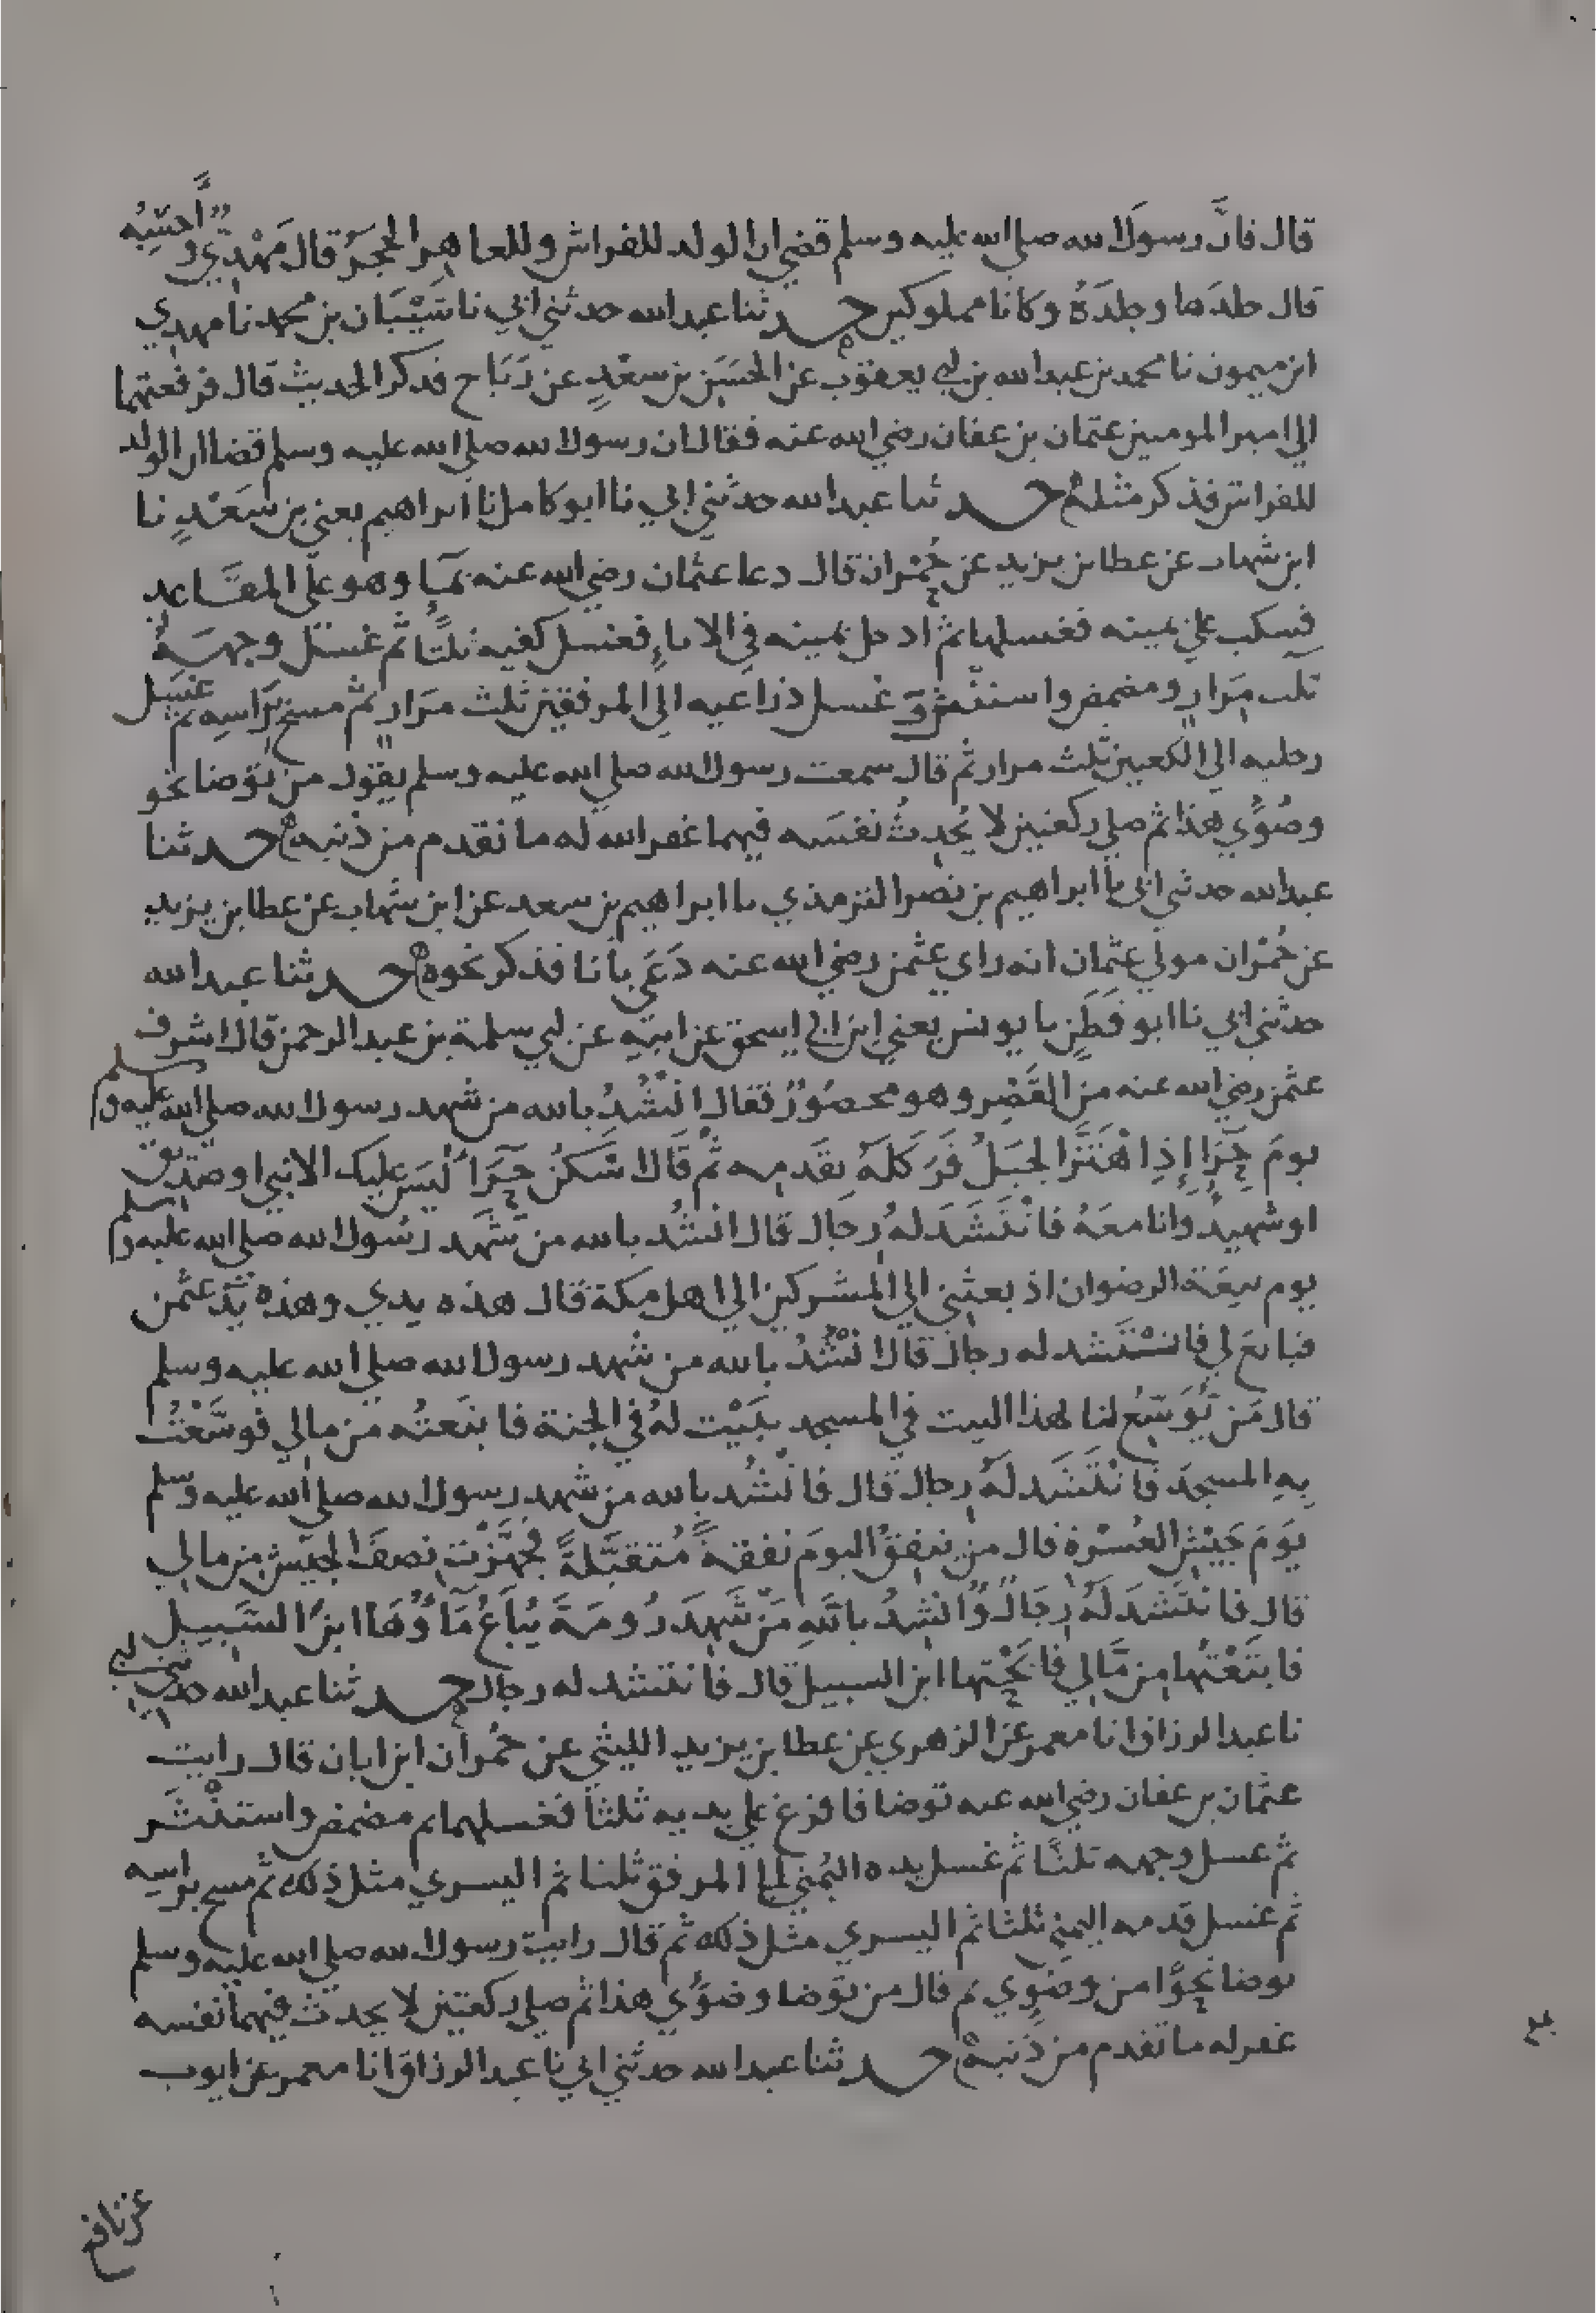 قال فانَّ رسول الله صلى الله عليه وسلم قضى ان الولد للفراش وللعاهر الحجرُ قال مَهْدِيّ واَحسِبُه
قال جلدَها وجلدَهُ وكانا مملوكين حدثنا عبد الله حدثني ابي نا شَيْبَان بن محمد نا مهدي
ابن ميمون نا محمد بن عبد الله بن ابي يعقوب عن الحسَن بن سعْدٍ عن رَبَاح فذكر الحديث قال فرفعتهما
الي امير المومنين عثمان بن عفان رضي الله عنه فقال ان رسول الله صلي الله عليه وسلم قضا ان الولد
للفراش فذكر مثله حدثنا عبد الله حدثني ابي نا ابو كامل نا ابراهيم يعني بن سَعْدٍ نا
ابن شهاب عن عطا بن يزيد عن حُمْران قال دعا عثمان رضي الله عنه بمآ وهو علي المقَاعد
فسكب علي يمينه فغسلها ثم ادخل يمينه في الاناءِ فغسل كفيه ثلثًا ثم غسَل وجهَهُ
ثلث مِرَارٍ ومضمض واستنثر وغسل ذراعيه الي المرفقين ثلث مرَار ثم مسح بِرَاسِه ثم غسَل
رجليه الي الكعبين ثلث مرار ثم قال سمعت رسول الله صلي الله عليه وسلم يقول من توضا نحو
وضُوَّي هذا ثم صلي ركعتين لا يُحدِثُ نفسَه فيهما غفر الله له ما تقدم من ذنبه حدثنا
عبد الله حدثني ابي نا ابراهيم بن نصر الترمذي نا ابراهيم بن سعد عن ابن شهاب عن عطا بن يزيد
عن حُمْران مولي عثمان انه راي عثمن رضي الله عنه دَعَي بانا فذكر نحوه حدثنا عبد الله
حدثني ابي نا ابو قَطَن نا يونس يعني ابن ابي اسحق عن ابيهِ عن ابي سلمة بن عبد الرحمن قال اشرف
عثمن رضي الله عنه من القَصْر وهو محصُورٌ فقال انْشُدُ بالله من شهد رسول الله صلي الله عليه وسلم
يومَ حِرَا إِذِ اهْتَزَّ الجبَلُ فَرَكَلَهُ بقَدمِه ثم قَال اسْكُنْ حِرَا لَيسَ عليك الا نبي او صدّيق
او شهيدٌ وانا معَهُ فانْتَشَدَ لهُ رجال قال انشُد بالله من شَهَد رسُول الله صلي الله عليه وسلم
يوم بيعَة الرضوان اذ بعثني الي المشركين الي اهل مكة قال هذه يدي وهذه يَد عثمن
فبايَع لي فانتَشد له رجال قال انْشُدُ بالله من شهد رسول الله صلي الله عليه وسلم
قال مَن يُوَسِّعُ لنا بهذا البيت في المسجد ببَيْت لهُ في الجنة فابتَعتُه من مالي فوسَّعْتُ
بِهِ المسجِدَ فانْتَشَد لَهُ رجال قال فانْشُد بالله من شهد رسول الله صلي الله عليه وسلم
يَوَمَ جَيْشِ العُسْرَةِ قال من ينفِقُ اليومَ نفقةً مُتقبَّلةً فجهَّزْت نصفَ الجيش من مالي
قال فانتَشدَ لَهُ رِجَال وَّانشِدُ باللَّهِ مَنْ شَهِدَ رُومَةَ يُبَاعُ مَآوُهَا ابنَ السَّبِيل
فابتَعْتُها مِن مَّالِي فابَحْتها ابن السبيل قال فانتشد له رجال حدثنا عبد الله حدثني ابي
نا عبد الرزاق انا معمر عن الزهري عن عطا بن يزيد الليثي عن حُمران ابن ابان قال رايت
عثمان بن عفان رضي الله عنه توضا فافرغ علي يديه ثلثا فغسلهما ثم مضمض واستنْثَر
ثم غسل وجهه ثلثًا ثم غسل يده اليُمني الي المرفق ثلثا ثم اليسري مثل ذلك ثم مسح براسِه
ثم غسل قدمه اليمني ثلثا ثم اليسري مثل ذلك ثم قال رايت رسول الله صلي الله عليه وسلم
توضا نحوًا من وضوي ثم قال من توضا وضوَّي هذا ثم صلي ركعتين لا يحدث فيهما نفسه
غفر له ما تقدم من ذنبه حدثنا عبد الله حدثني ابي نا عبد الرزاق انا معمر عن ايوب
عن نافع